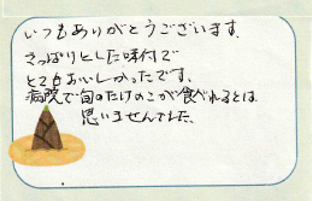 いつもありがとうございます.
さっぱりとした味付で
とてもおいしかったです。
病院で旬のたけのこが食べれるとは
思いませんでした、